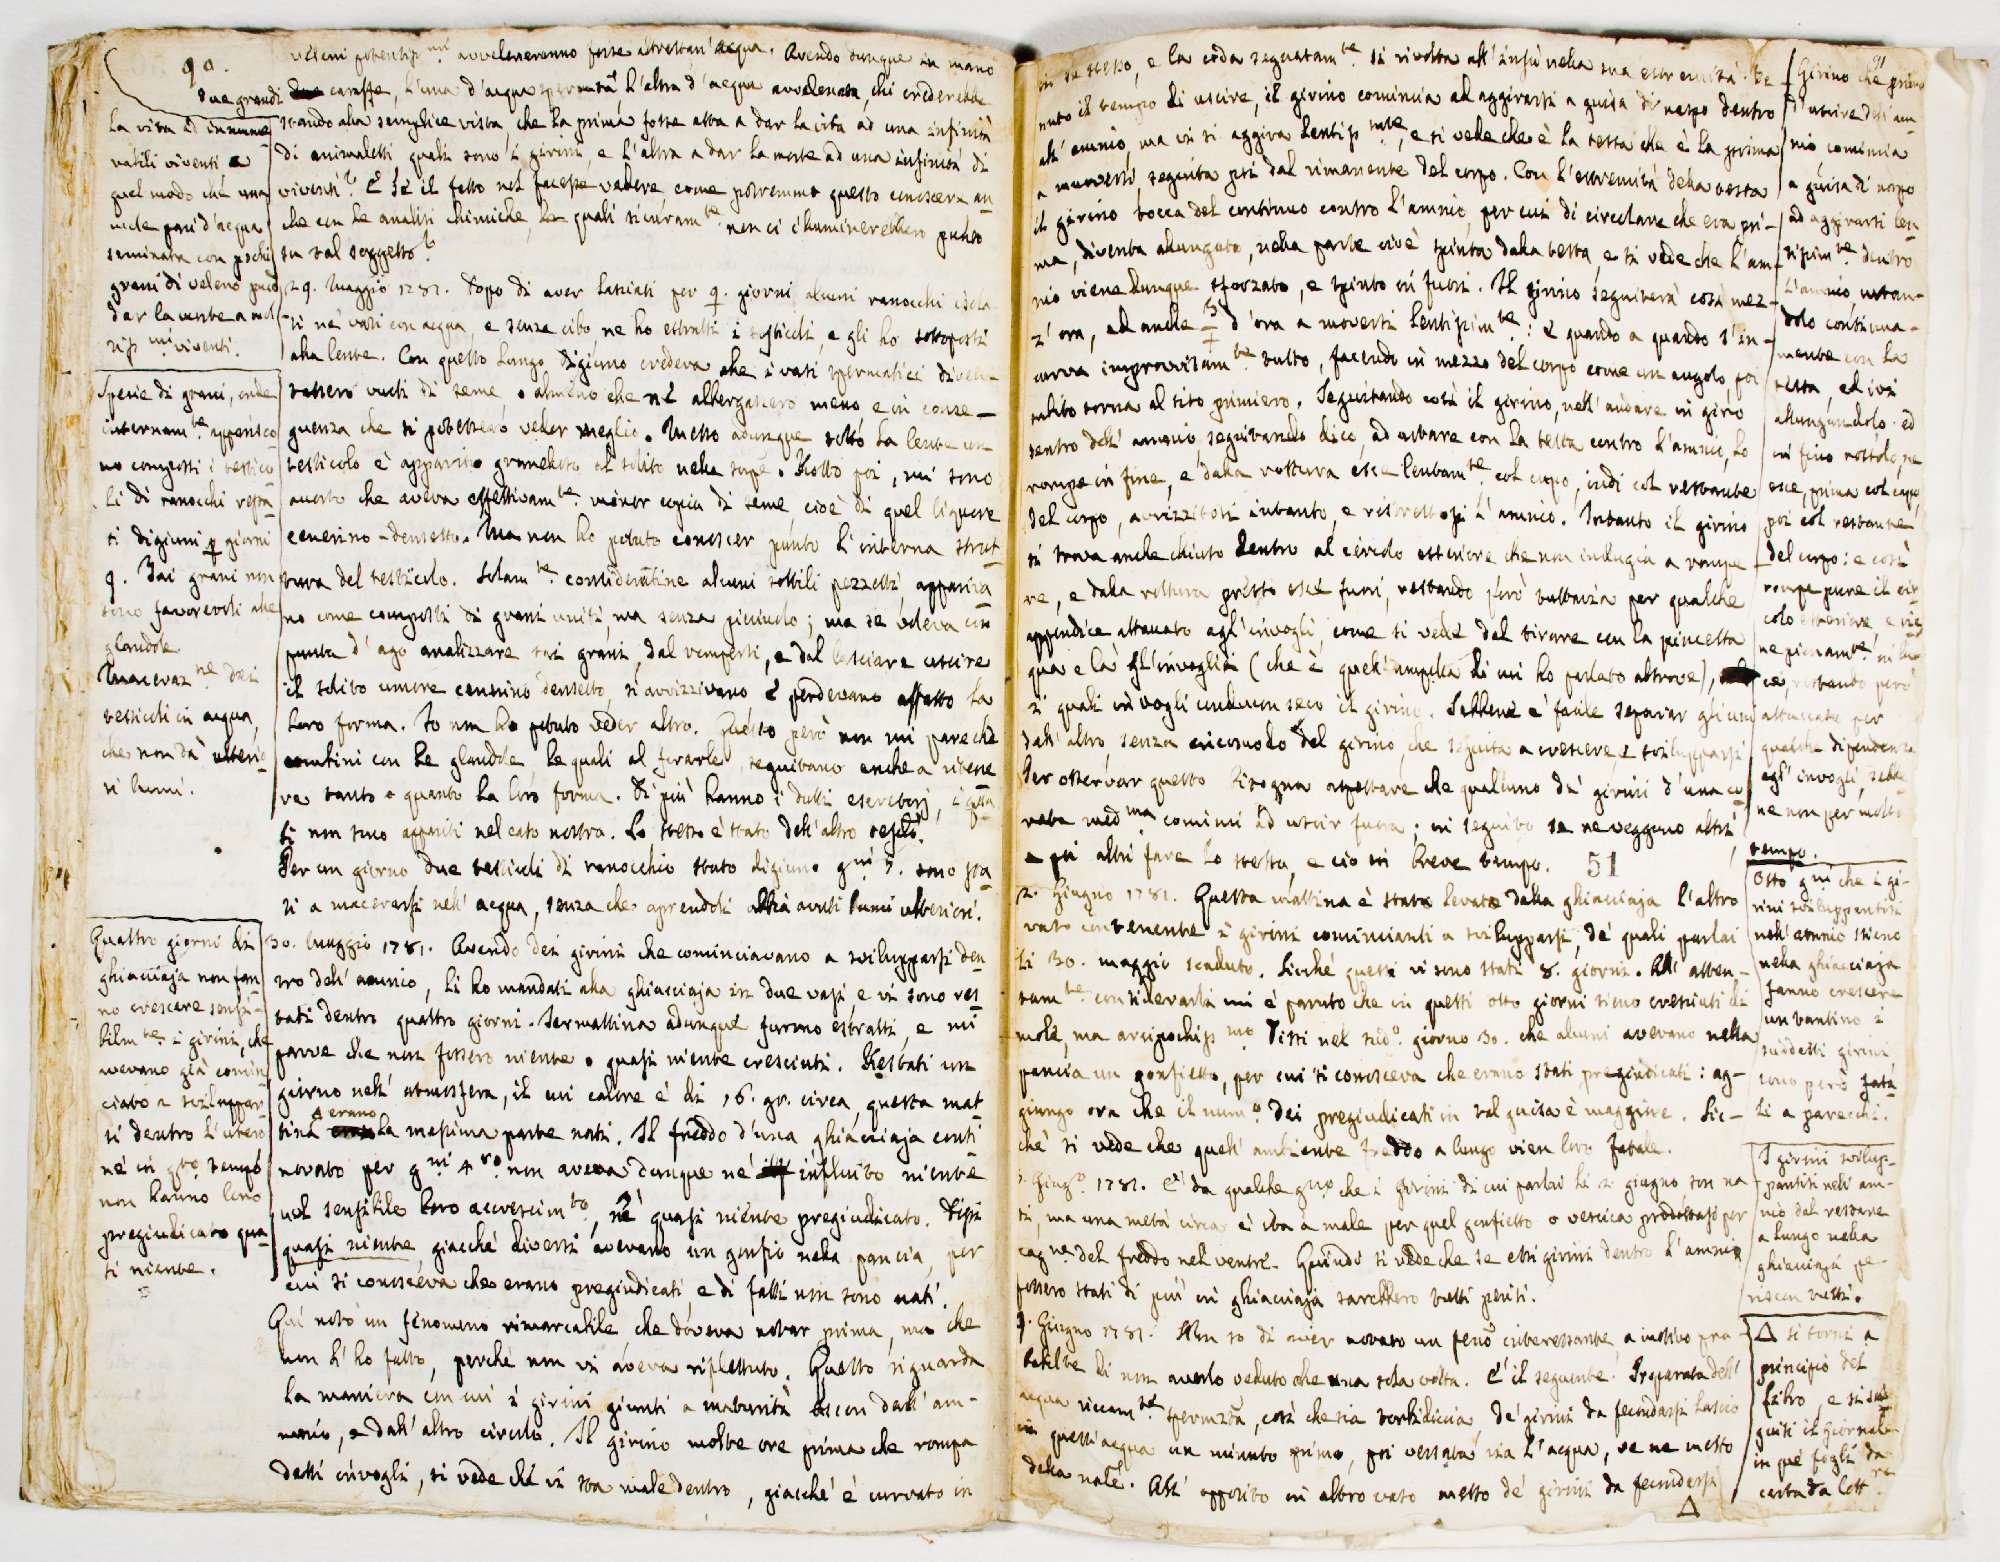 90.
veleni potentiss.mi avveleneranno forse altrettant'acqua. Avendo dunque in mano
due grandi caraffe, l'una d'acqua spermatiz.ta l'altra d'acqua avvelenata, chi crederebbe
stando alla semplice vista, che la prima fosse atta a dar la vita ad una infinità
di animaletti quali sono i girini, e l'altra a dar la morte ad una infinità di
viventi? E se il fatto nol facesse vedere come potremmo questo conoscere an-
che con le analisi chimiche, le quali sicuram.te non ci illuminerebbero punto
su tal soggetto?
La vita ad innume-
rabili viventi, e
quel modo che una
mole pari d'acqua
seminata con pochi
grani di veleno può
dar la morte a mol-
tiss.mi viventi.
29. Maggio 1781. Dopo di aver lasciati per 9. giorni alcuni ranocchi isola-
ti ne' vasi con acqua, e senza cibo ne ho estratti i testicoli, e gli ho sottoposti
alla lente. Con questo lungo digiuno credeva che i vasi spermatici diven-
tassero vuoti di seme o almeno che ne albergassero meno e in conse-
guenza che si potessero veder meglio. Messo adunque sotto la lente un
testicolo è apparito granelloso al solito nella supe. Rotto poi, mi sono
accorto che aveva effettivam.te minor copia di seme, cioè di quel liquore
cenerino-densetto. Ma non ho potuto conoscer punto l'interna strut-
tura del testicolo. Solam.te considerandone alcuni sottili pezzetti appariva-
no come composti di grani uniti, ma senza picciuolo; ma se voleva con
punta d'ago analizzare tai grani, dal rompersi, e dal lasciare uscire
il solito umore cenerino densetto, si avvizzivano e perdevano affatto la
loro forma. Io non ho potuto veder altro. Questo però non mi pare che
combini con le glandole le quali al forarle, seguitano anche a ritene-
re tanto o quanto la loro forma. Di più hanno i dutti escretorj, i qua-
li non sono appariti nel caso nostro. Lo stesso è stato dell'altro testic.o
Per un giorno due testicoli di ranocchio stato digiuno g.ni 9. sono sta-
ti a macerarsi nell'acqua, senza che aprendoli abbia avuti lumi ulteriori.
Spezie di grani, onde
internam.te appariscono
no composti i testico-
li di ranocchi resta-
ti digiuni p giorni
9. Tai grani non
sono favorevoli alle
glandole.
Maceraz.ne dei
testicoli in acqua,
che non dà ulterio-
ri lumi.
30. Maggio 1781. Avendo dei girini che cominciavano a svilupparsi den-
tro dell'amnio, li ho mandati alla ghiacciaja in due vasi e vi sono res-
tati dentro quattro giorni. Jermattina adunque furono estratti, e mi
parve che non fossero niente o quasi niente cresciuti. Restati un
giorno nell'atmosfera, il cui calore è di 16. gr. circa, questa mat-
tina erano la massima parte nati. Il freddo d'una ghiacciaja conti-
novato per g.ni 4.ro non aveva dunque nè influito niente
nel sensibile loro accrescim.to, nè quasi niente pregiudicato. Dissi
quasi niente, giacchè diversi avevano un gonfio nella pancia, per
cui si conosceva che erano pregiudicati e di fatti non sono nati.
Quì noto un fenomeno rimarcabile che doveva notar prima, ma che
non l'ho fatto, perchè non vi aveva riflettuto. Questo riguarda
la maniera con cui i girini giunti a maturità escon dall'am-
nio, e dall'altro circolo. Il girino molte ore prima che rompa
detti invogli, si vede che vi sta male dentro, giacchè è curvato in
Quattro giorni di
ghiacciaja non fan-
no crescere sensi-
bilm.te i girini, che
avevano già comin-
ciato a sviluppar-
si dentro l'utero
nè in q.to tempo
non hanno loro
pregiudicato qua-
si niente.
91
in se stesso, e la coda segnatam.te si rivolta all'insù nella sua estremità. Ve-
nuto il tempo di uscire, il girino comincia ad aggirarsi a guisa di naspo dentro
all'amnio, ma vi si aggira lentiss.mte, e si vede che è la testa che è la prima
a muoversi, seguita poi dal rimanente del corpo. Con l'estremità della testa
il girino tocca del continuo contro l'amnio, per cui di circolare che era pri-
ma, diventa allungato, nella parte cioè spinta dalla testa, e si vede che l'am-
nio viene dunque sforzato, e spinto in fuori. Il girino seguiterà così mez-
z'ora, ed anche d'ora a moversi lentissim.te: e quando a quando s'in-
curva improvvisam.te tutto, facendo in mezzo del corpo come un angolo, poi
subito torna al sito primiero. Seguitando così il girino, nell'andare in giro
dentro dell'amnio, seguitando dico, ad urtare con la testa contro l'amnio, lo
rompe in fine, e dalla rottura esce lentam.te col capo, indi col restante
del corpo, avvizzitosi intanto, e ristrettosi l'amnio. Intanto il girino
si trova anche chiuso dentro al circolo esteriore che non indugia a rompe-
re, e dalla rottura presto esce fuori, restando però tuttavia per qualche
appendice attaccato agl'invogli, come si vede dal tirare con la pincetta
qua e là gl'invogli (che è quell'ampolla di cui ho parlato altrove),
i quali invogli conducon seco il girino. Sebbene è facile separar gli uni
dall'altro senza incomodo del girino, che seguita a crescere e svilupparsi.
Per osservar questo bisogna aspettare che qualcuno de' girini d'una co-
vata med.ma cominci ad uscir fuora; in seguito se ne veggono altri,
e poi altri fare lo stesso, e ciò in breve tempo.
51
Girino che prima
d'uscire dell'am-
nio comincia
a guisa di naspo
ad aggirarsi len-
tissim.te dentro
l'amnio, urtan-
dolo continua-
mente con la
testa, ed ivi
allungandolo: ed
in fine rottolo, ne
esce, prima col capo,
poi col restante
del corpo: e così
rompe pure il cir-
colo esteriore e vie-
ne pienam.te in lu-
ce, restando però
attaccato per
qualche dipendenza
agl'invogli, sebbe-
ne non per molto
tempo.
2. Giugno 1781. Questa mattina è stato levato dalla ghiacciaja l'altro
vaso contenente i girini comincianti a svilupparsi, de' quali parlai
li 30. maggio scaduto. Sicchè questi vi sono stati 8. giorni. All'atten-
tam.te considerarli mi è paruto che in questi otto giorni sieno cresciuti di
mole, ma arcipochiss.mo. Dissi nel sud.o giorno 30. che alcuni avevano nella
pancia un gonfietto, per cui si conosceva che erano stati pregiudicati: ag-
giungo ora che il num.o dei pregiudicati in tal guisa è maggiore. Sic-
chè si vede che quell'ambiente freddo a lungo vien loro fatale.
Otto g.ni che i gi-
rini sviluppantisi
nell'amnio stieno
nella ghiacciaja
fanno crescere
un tantino i
suddetti girini
sono però fata-
li a parecchi.
Giug.o 1781. E' da qualche g.no che i girini di cui parlai li 2 giugno son na-
ti, ma una metà circa è ita a male per quel gonfietto o vescica prodottasi per
cag.ne del freddo nel ventre. Quindi si vede che se essi girini dentro l'amnio
fossero stati di più in ghiacciaja sarebbero tutti periti.
I girini svilup-
pantisi nell'am-
nio dal restare
a lungo nella
ghiacciaja pe-
riscon tutti.
9. Giugno 1781. Non so di aver notato un fenō interessante a motivo pro-
babilte di non averlo veduto che una sola volta. E' il seguente. Preparata dell'
acqua riccam.te spermatiz.ta, così che sia torbidiccia, de' girini da fecondarsi lascio
in quest'acqua un minuto primo, poi versata via l'acqua, ve ne metto
della natle. All'opposito in altro vaso metto de' girini da fecondarsi
Δ
Δ si torni a
principio del
Libro, e si se-
guiti il Giornale
in que' fogli da
carta da lett.re